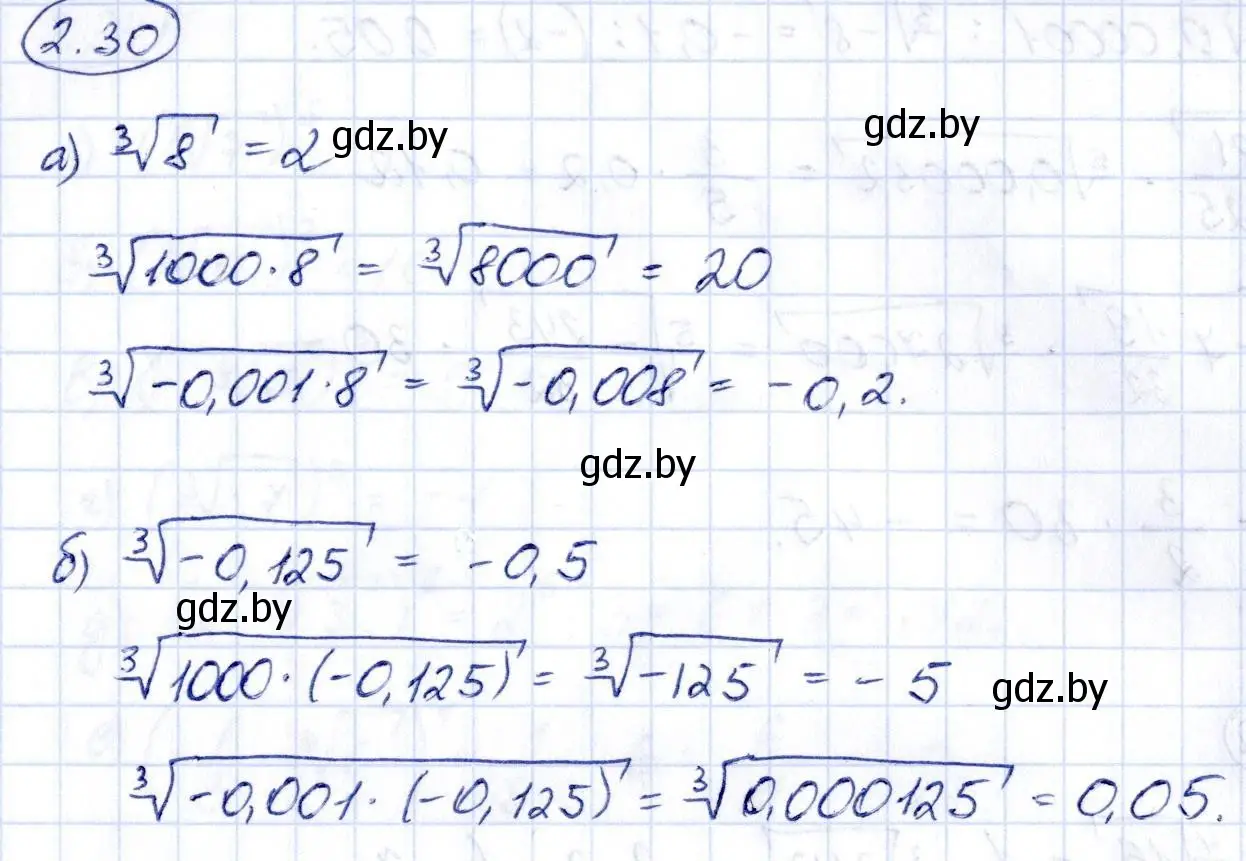 2.30
а) ∛8 = 2 gdz.by
gdz.by
∛(1000·8) = ∛8000 = 20
∛(-0,001·8) = ∛(-0,008) = -0,2.
gdz.by
б) ∛(-0,125) = -0,5
gdz.by
∛(1000·(-0,125)) = ∛(-125) = -5 gdz.by
∛(-0,001·(-0,125)) = ∛(0,000125) = 0,05.